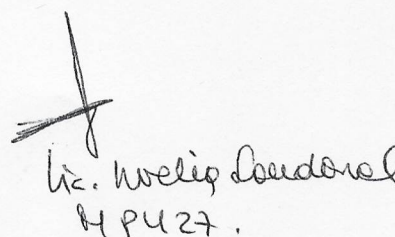 Lic. Noelia Sandoval
MP 427.